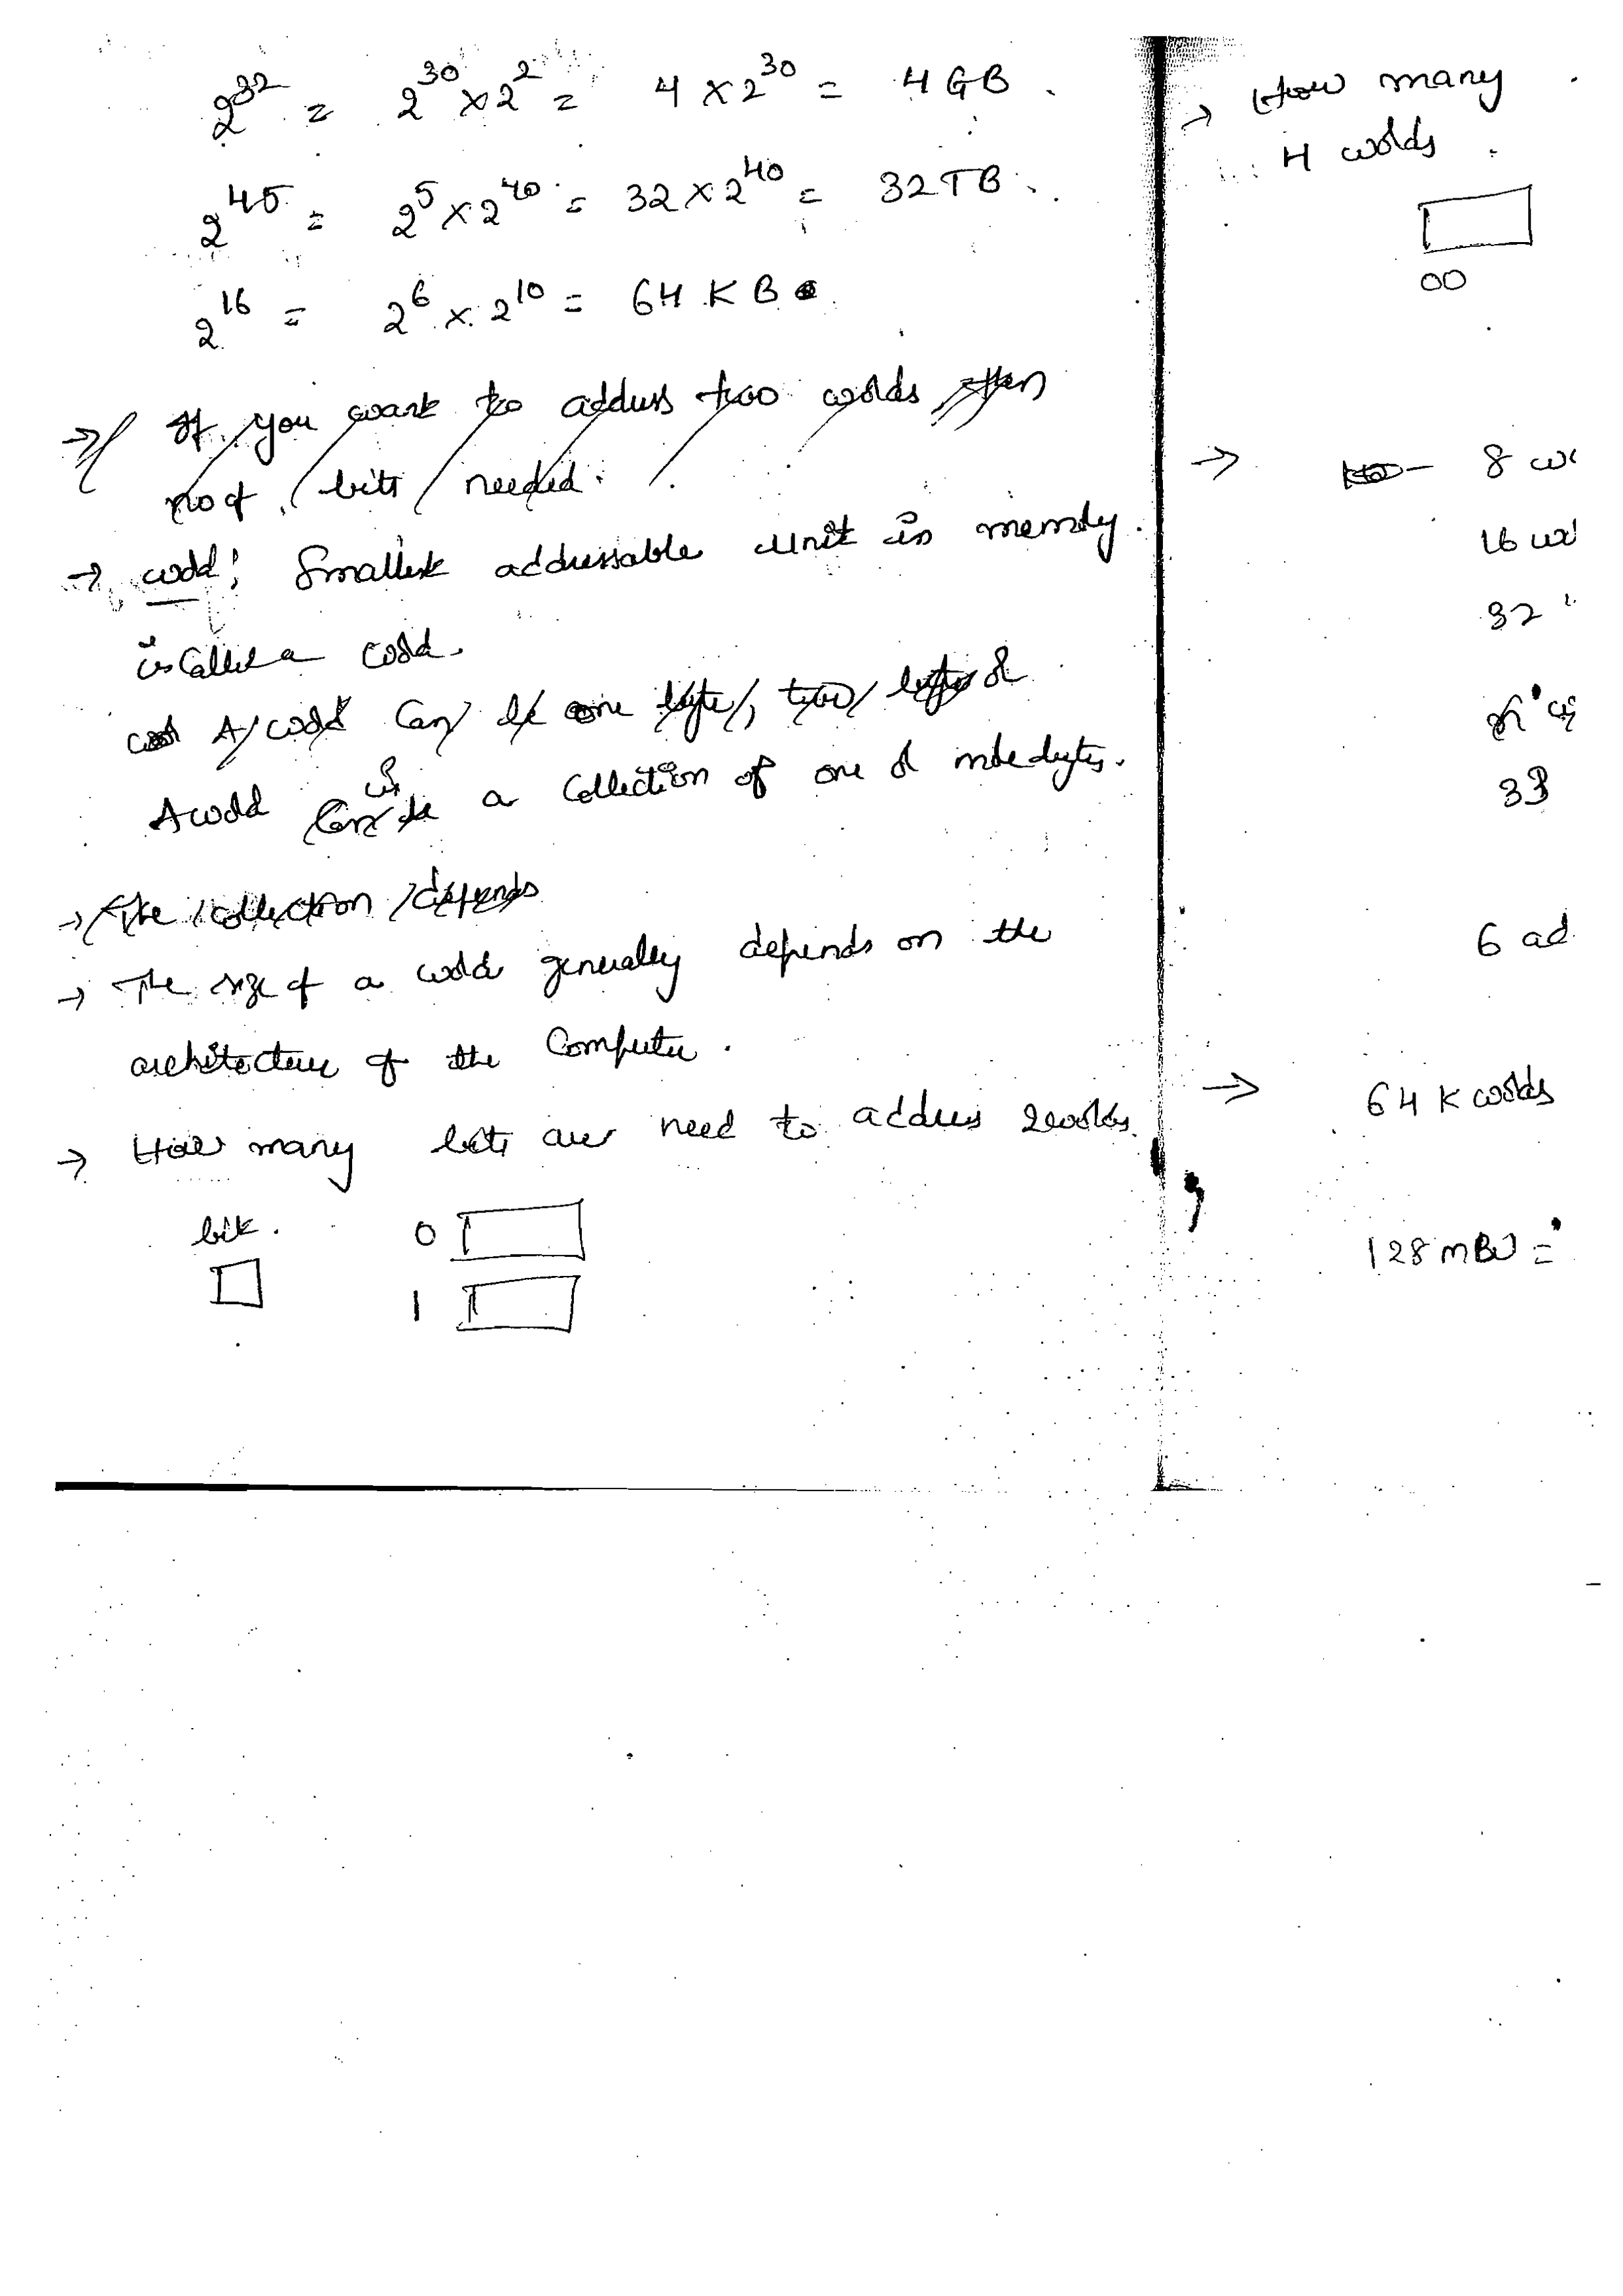 2^32 = 2^30 × 2^2 = 4 × 2^30 = 4 GB.
2^45 = 2^5 × 2^40 = 32 × 2^40 = 32 TB.
2^16 = 2^6 × 2^10 = 64 KB
→ If you want to address two words, then
no of bits needed.
→ word: Smallest addressable unit in memory.
is called a word.
A word can be one byte, two bytes or
A word is a collection of one or more bytes.
→ The collection depends
→ The size of a word generally depends on the
architecture of the Computer.
→ How many bits are need to address 2 words.
bit. 0
1
→ How many
4 words.
00
→ 8 wo
16 wo
32
33
6 ad
→ 64 K words
128 MBW =